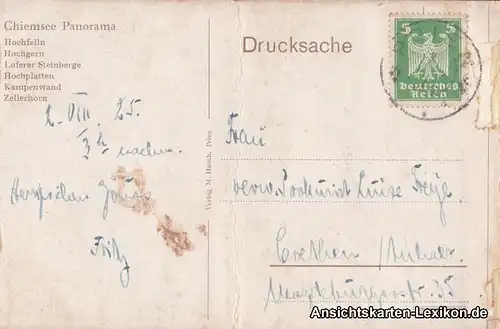 Chiemsee Panorama
Hochfelln
Hochgern
Loferer Steinberge
Hochplatten
Kampenwand
Zellerhorn
Drucksache
5 5
Deutsches
Reich
2. VIII. 25.
3 h nachm.
Herzlichen Gruß
Fritz
Verlag M. Hauch, Prien
Frau
verw. Prokurist Luise
Coethen / Anhalt
Magdeburgerstr. 35
Ansichtskarten-Lexikon.de